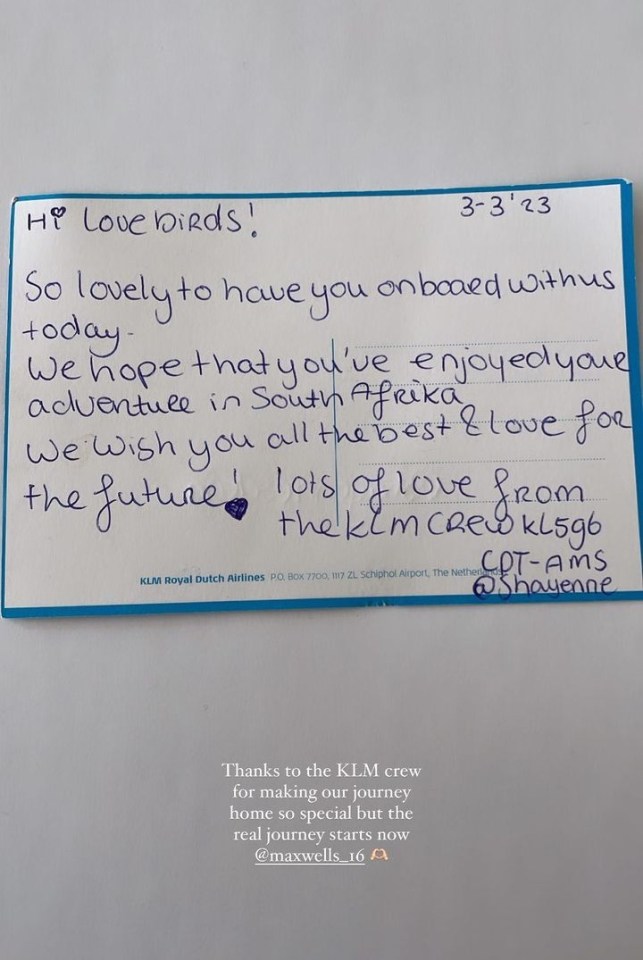 Hi Lovebirds! 3-3'23
So lovely to have you onboard with us
today.
We hope that you've enjoyed your
adventure in South Afrika
We wish you all the best & love for
the future! lots of love from
the KLM CREW KL596
CPT-AMS
KLM Royal Dutch Airlines P.O. Box 7700, 1117 ZL Schiphol Airport, The Netherlands
@Shayenne
Thanks to the KLM crew
for making our journey
home so special but the
real journey starts now
@maxwells_16 🫶🏻